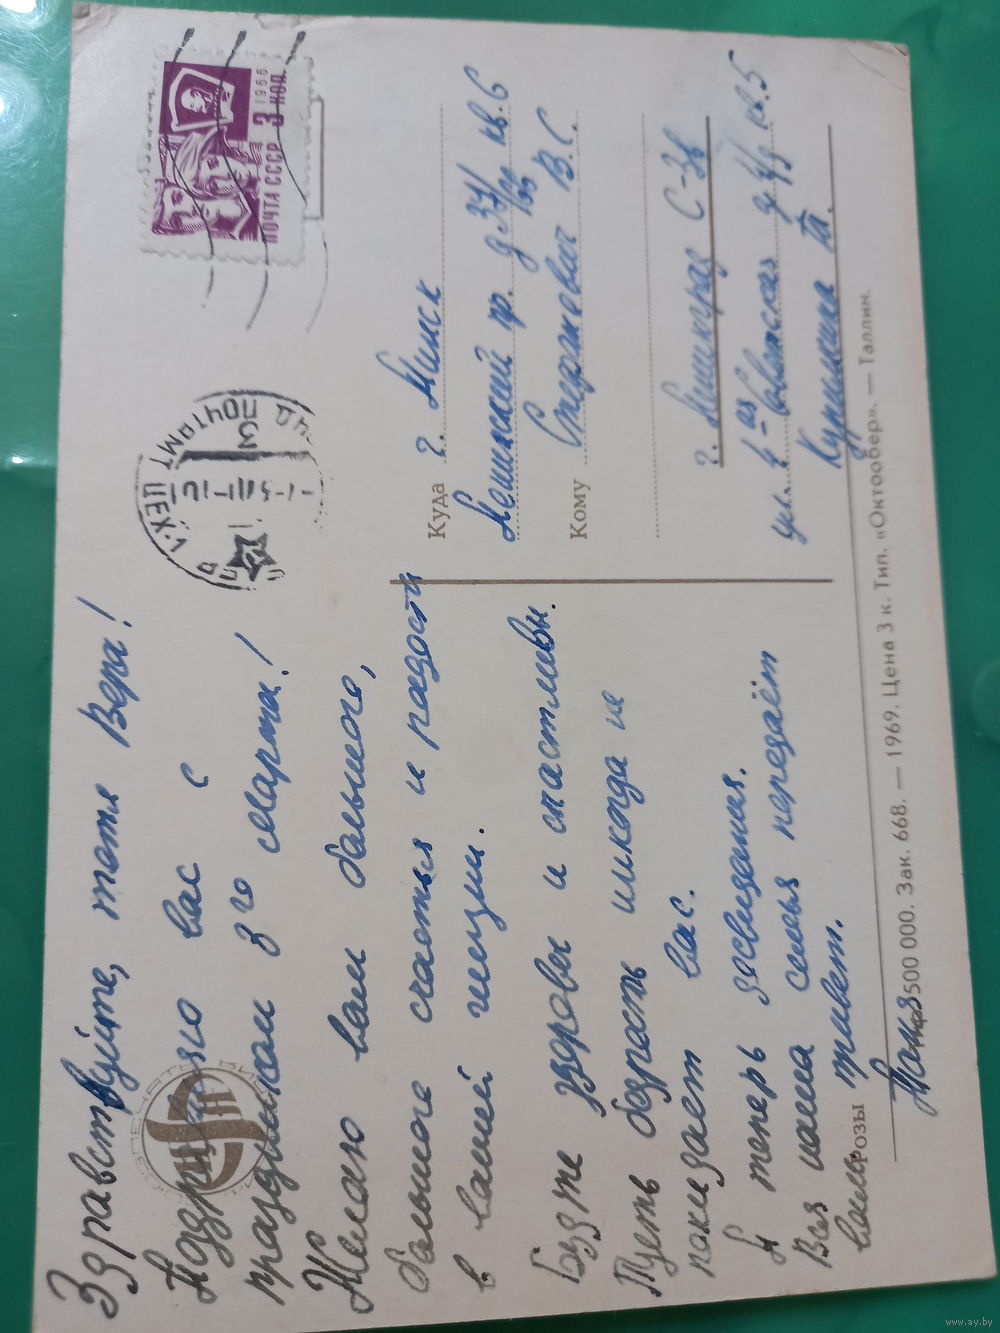 Здравствуйте, тётя Вера!
Поздравляю вас с
праздником 8го марта!
Желаю вам большого,
большого счастья и радости
в вашей жизни.
Будте здоровы и счастливы.
Пусть бодрость никогда не
покидает вас.
А теперь досвидания.
Вся наша семья передаёт
вам привет.
Таня
розы
500 000. Зак. 668. — 1969. Цена 3 к. Тип. «Октообер». — Таллин.
ПОЧТА СССР 3 КОП.
1966
ПОЧТАМТ
ЦЕХ
Куда г. Минск
Ленинский пр. д 34/166 кв. 6
Кому Стефанович В.С.
г. Ленинград С-36
ул. 4-ая Советская д 4/3 кв. 5
Курицина Т.
www.ay.by